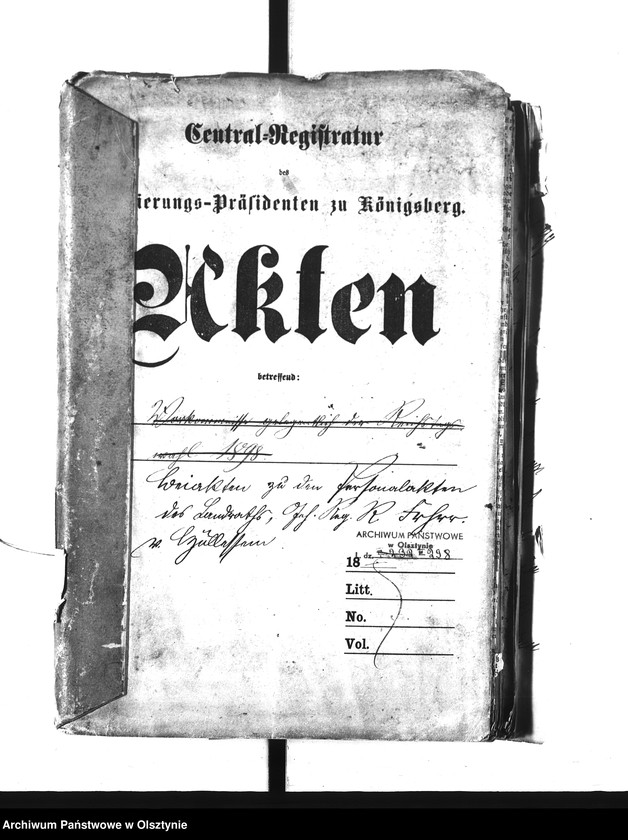 Central-Registratur
des
ierungs-Präsidenten zu Königsberg.
Akten
betreffend:
Vorkommnisse gelegentlich der Reichstags
wahl 1898
Beiakten zu den Personalakten
des Landraths, Geh. Reg. R. Frhrr.
v. Hüllessem
ARCHIWUM PAŃSTWOWE
w Olsztynie
18
Litt.
No.
Vol.
Archiwum Państwowe w Olsztynie